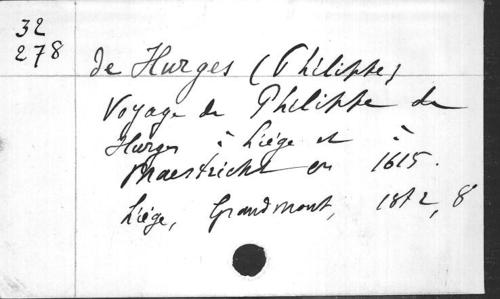 32
278
de Hurges (Philippe)
Voyage de Philippe de
Hurges à Liége et à
Maestricht en 1615.
Liége, Grandmont, 1872, 8°